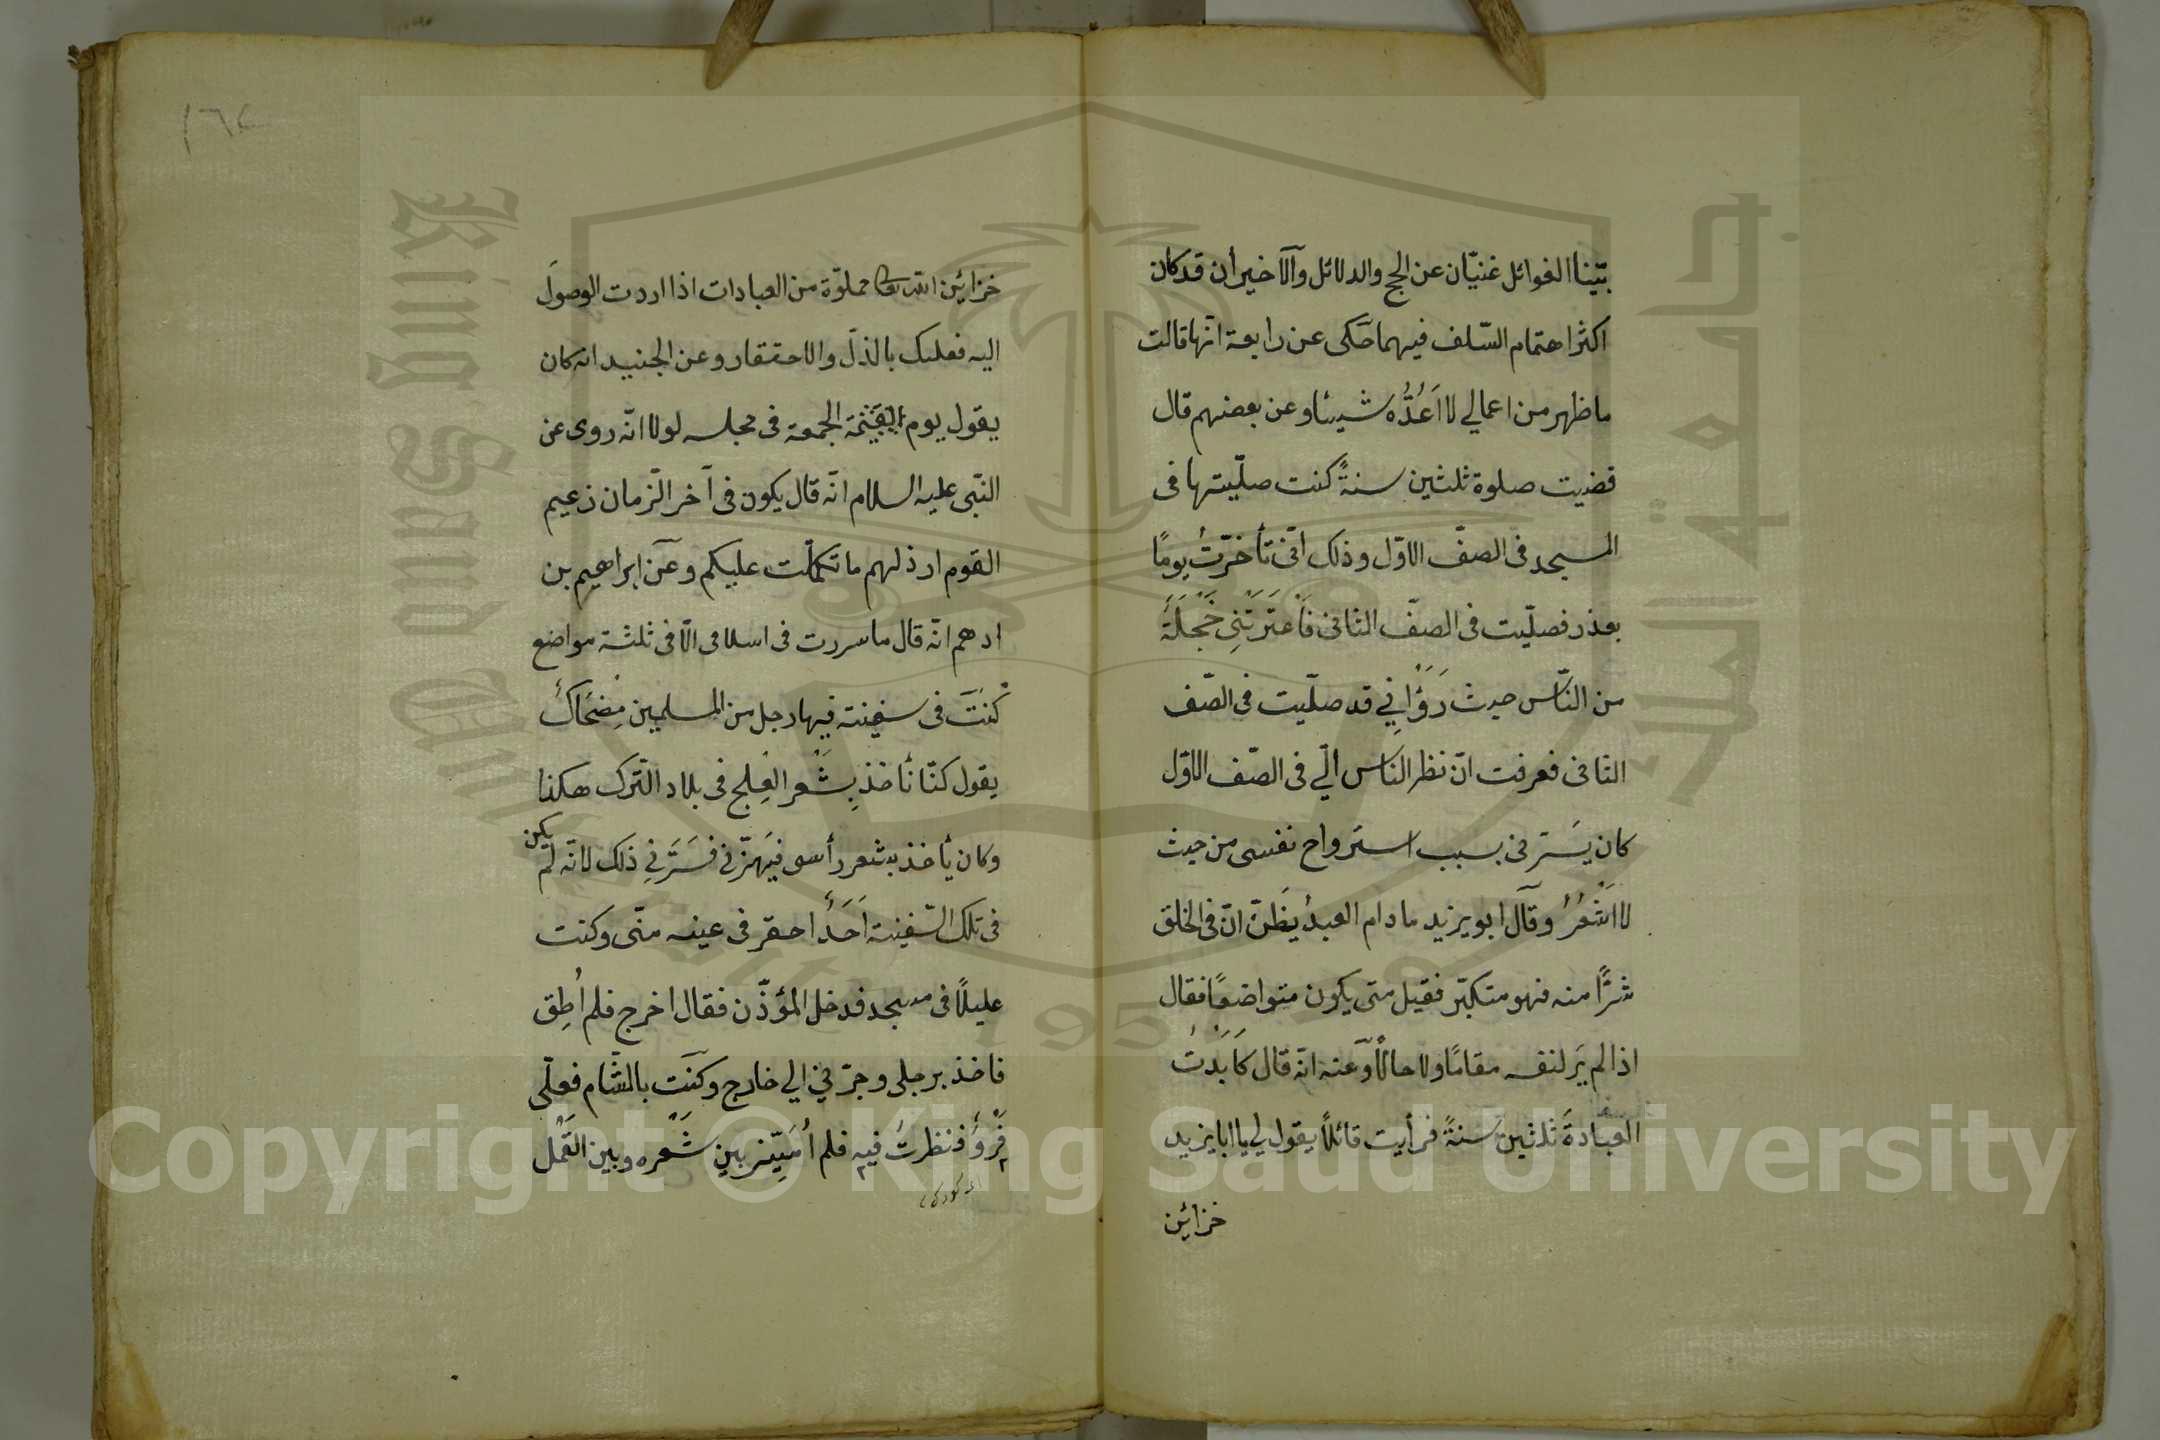 بيّنا الغوائل غنيّان عن الحجج والدلائل والآخيران قد كان
اكثر اهتمام السّلف فيهما حكى عن رابعة انّها قالت
ما ظهر من اعمالي لا اَعُدُّه شيئا وعن بعضهم قال
قضيت صلوة ثلثين سنةً كنت صلّيتها فى
المسجد فى الصفّ الاوّل وذلك انّى تأخّرتُ يومًا
بعذر فصلّيت فى الصفّ الثانى فَاعْتَرَتْنِي خَجْلَةٌ
من النّاس حيث رَؤَانِي قد صلّيت فى الصّف
الثانى فعرفت انّ نظر الناس الَيّ فى الصّف الاوّل
كان يَسرّنى بسبب استرواح نفسى من حيث
لا اَشْعُرُ وقال ابو يزيد ما دام العبدُ يظنّ انّ فى الخلق
شرًّا منه فهو متكبّر فقيل متى يكون متواضعًا فقال
اذا لم يَر لنفسه مقامًا ولا حالًا وعنه انّه قال كَابَدْتُ
العبادةَ ثلثين سنةً فرأيت قائلًا يقول لي يا ابا يزيد
خزائن
١٦٧
خزائن الله تعالى مملوّة من العبادات اذا اردت الوصولَ
اليه فعليك بالذلّ والاحتقار وعن الجنيد انه كان
يقول يوم الجمعة فى مجلسه لولا انّه روى عن
النبّى عليه السلام انّه قال يكون فى آخر الزّمان زعيم
القوم ارذلهم ما تكلّمت عليكم وعن ابراهيم بن
ادهم انّه قال ما سررت فى اسلامى الّا فى ثلثة مواضع
كُنْتَ فى سفينة فيها رجل من المسلمين مِضحَاكٌ
يقول كنّا نأخذ بِشَعْر العِلج فى بلاد التّرك هكذا
وكان يأخذ بشعر رأسى فيَهزّنى فسَرَّنِي ذلك لانّه لم يكن
فى تلك السّفينة اَحَدٌ احقر فى عينه منّى وكنت
عليلًا فى مسجد فدخل المؤذّن فقال اخرج فلم اُطِق
فاخذ برجلى وجرّني الي خارج وكنت بالشّام فعلّى
فَرْوٌ فنظرتُ فيه فلم اُمَيّز بين شَعْره وبين القَمْل
King Saud University
جامعة الملك سعود
1957
Copyright © King Saud University